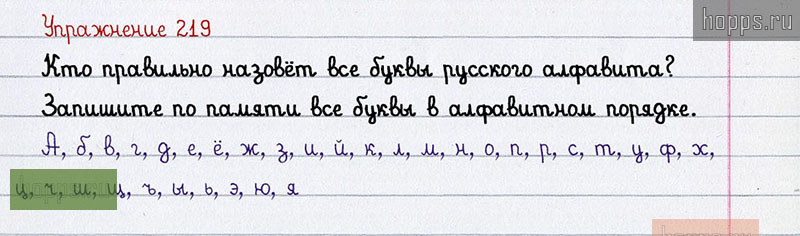 hopps.ru
Упражнение 219
Кто правильно назовёт все буквы русского алфавита?
Запишите по памяти все буквы в алфавитном порядке.
А, б, в, г, д, е, ё, ж, з, и, й, к, л, м, н, о, п, р, с, т, у, ф, х,
ц, ч, ш, щ, ъ, ы, ь, э, ю, я